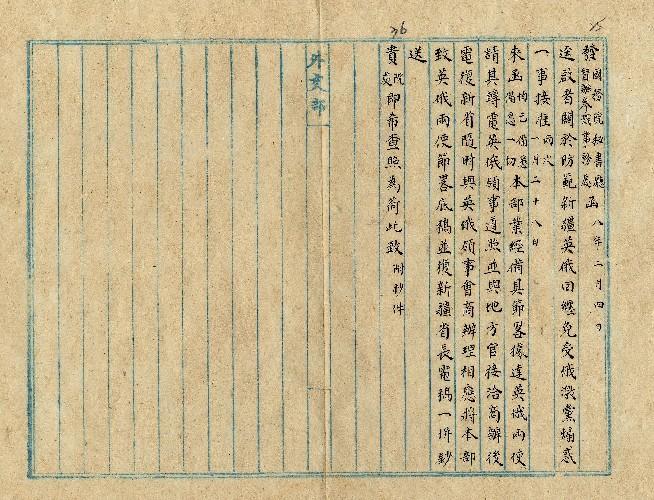 發國務院秘書廳 督辦參戰事務處 函 八年二月四日
逕啟者關於防範新疆英俄回纏免受俄激黨煽惑
一事接准 兩次 一月二十八日
來函 均已備悉 備悉一切 本部業經備具節畧緣達英俄兩使
請其轉電英俄領事遵照並與地方官接洽商辦後
電復新省隨時與英俄領事會商辦理相應將本部
致英俄兩使節畧底稿並復新疆省長電稿一併鈔
送
貴院 處 即希查照為荷此致 附鈔件
外交部
76
75